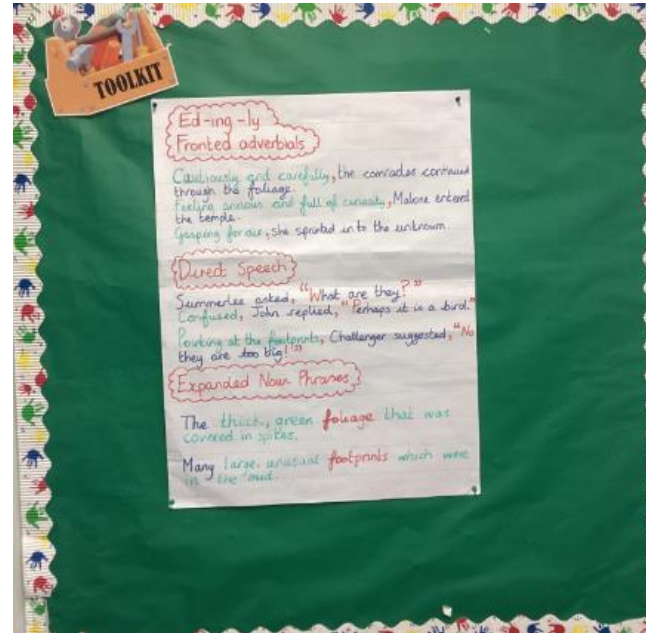 TOOLKIT
Ed-ing-ly
Fronted adverbials
Cautiously and carefully, the comrades continued
through the foliage.
Feeling anxious and full of curiosity, Malone entered
the temple.
Gasping for air, she sprinted in to the unknown.
Direct Speech
Summerlee asked, "What are they?"
Confused, John replied, "Perhaps it is a bird."
Pointing at the footprints, Challenger suggested, "No
they are too big!"
Expanded Noun Phrases
The thick, green foliage that was
covered in spikes.
Many large, unusual footprints which were
in the mud.